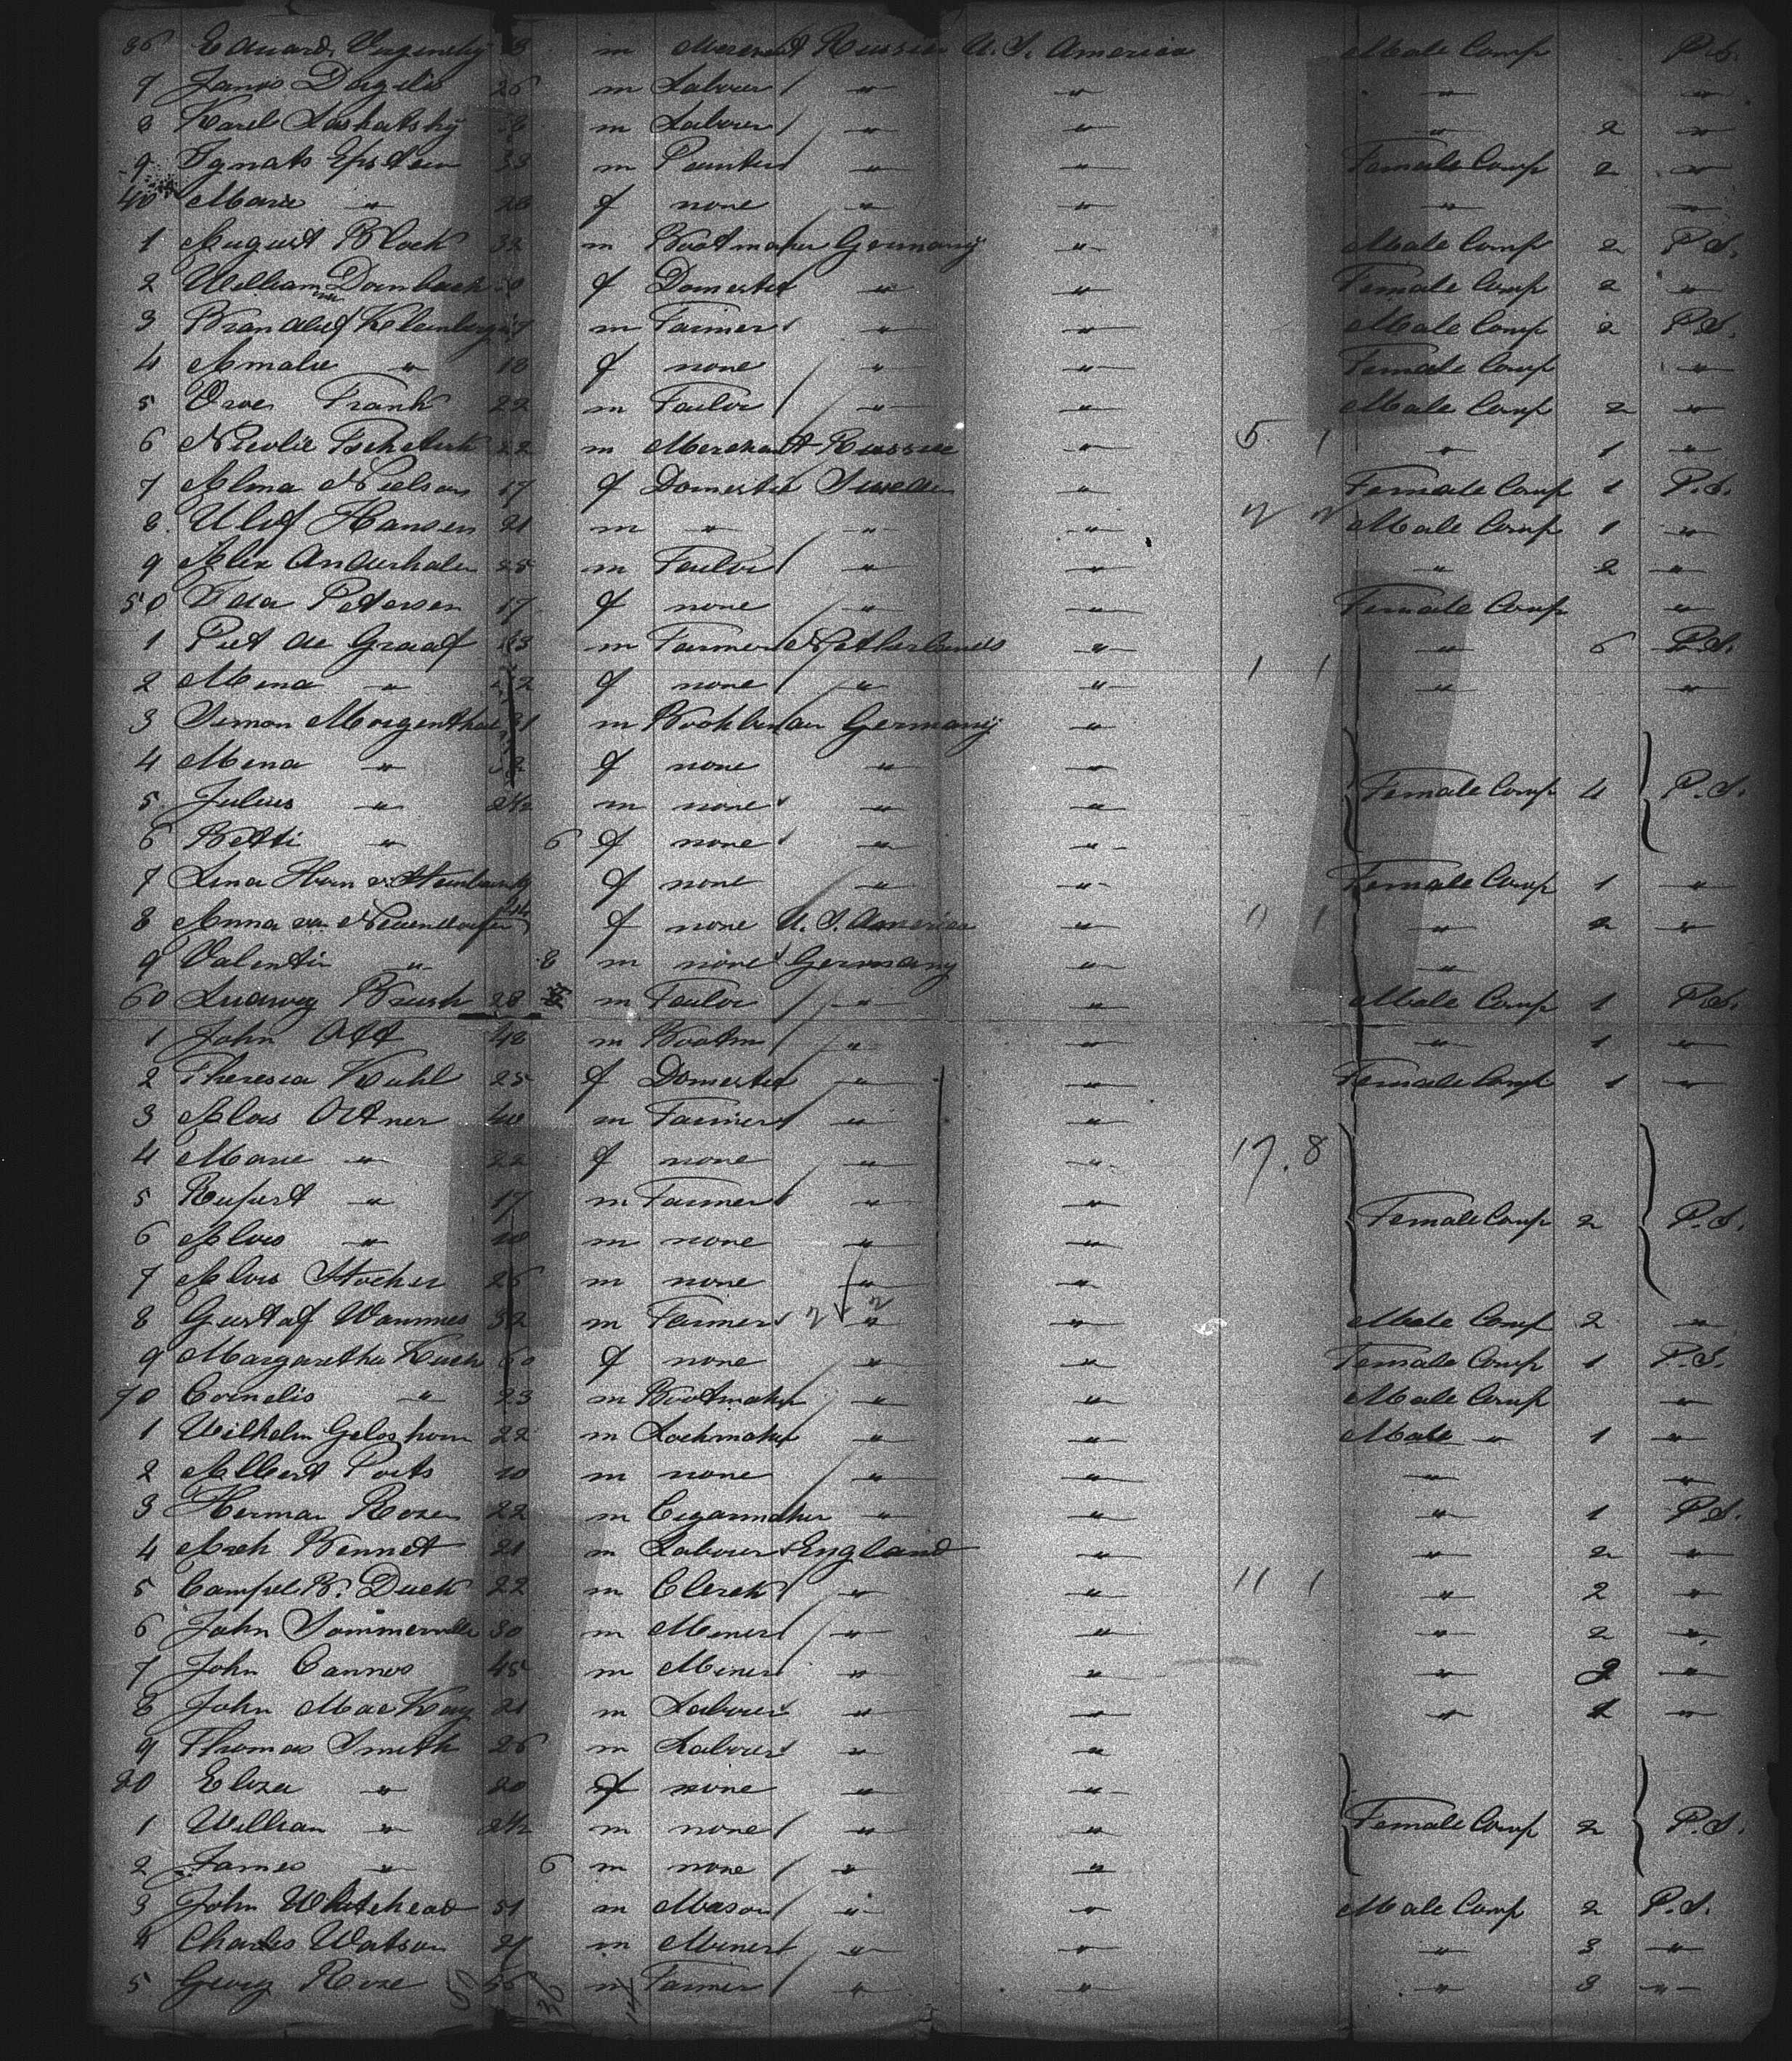 36 Eduard m Russia U. S. America Male Comp P.S.
7 Janos Dargelis 26 m Labour " " " "
8 Karel Laskatsky m Labour " " " 2 "
9 Ignats Epstein 33 m Painter " " Female Comp 2 "
40 Marie " 28 f none " " " "
1 August Block 32 m Bootmaker Germany " Male Comp 2 P.S.
2 William Dornbach f Domestic " " Female Comp 2 "
3 Kleinberg m Farmer " " Male Comp 2 P.S.
4 Amalie " 18 f none " " Female Comp "
5 Frank 22 m Tailor " " Male Comp 2 "
6 22 m Merchant Russia " 5 1 " 1 "
7 Alma Nielson 17 f Domestic Sweden " Female Comp 1 P.S.
8 Ulof Hansen 21 m " " " Male Comp 1 "
9 Alex 25 m Tailor " " " 2 "
50 Ida Petersen 17 f none " " Female Comp "
1 Piet de Graaf m Farmer Netherlands " " 6 P.S.
2 Mena " f none " " 1 1 " "
3 Simon Morgenthau 31 m Bookbinder Germany "
4 Mena " f none " "
5 Julius " 2½ m none " " Female Comp 4 P.S.
6 Betti " 6 f none " "
7 Lina f none " " Female Comp 1 "
8 Anna f none U. S. America " " 2 "
9 Valentin " 8 m none Germany " "
60 Ludwig 28 m Tailor " " Male Comp 1 P.S.
1 John Ott 48 m Bootm " " " 1 "
2 Theresia Kuhl 25 f Domestic " " Female Comp 1 "
3 Alois Ortner 40 m Farmer " "
4 Marie " 22 f none " " 17. 8
5 Rupert " 17 m Farmer " " Female Comp 2 P.S.
6 Alois " 10 m none " "
7 Alois Stocker 26 m none " "
8 Gustaf Wammes 32 m Farmer " " Male Comp 2 "
9 Margaretha 60 f none " " Female Comp 1 P.S.
70 Cornelis " 23 m Bootmaker " " Male Comp "
1 Wilhelm 22 m Lockmaker " " Male " 1 "
2 Albert Poets 10 m none " " " "
3 Herman Rosen 22 m Cigarmaker " " " 1 P.S.
4 Bennet 21 m Labour England " " 2 "
5 Campel R. Duck 22 m Clerk " " 11 1 " 2 "
6 John Sommerville 30 m Miner " " " 2 "
7 John Cannos 45 m Miner " " " 2 "
8 John MacKay 21 m Labour " " " 1 "
9 Thomas Smith 26 m Labour " "
80 Eliza " 20 f none " "
1 William " 2½ m none " " Female Comp 2 P.S.
2 James " 6 m none " "
3 John Whitehead 51 m Mason " " Male Comp 2 P.S.
4 Charles Watson m Miner " " " 3 "
5 Georg Rose 56 m Farmer " " " 3 "